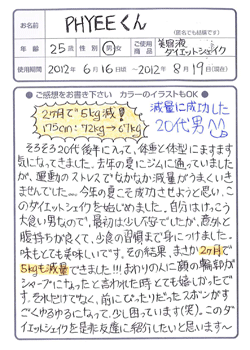 お名前 PHYEEくん
(匿名でも結構です)
年齢 25歳 性別 男・女 ご使用商品 美容液 ダイエットシェイク
使用期間 2012年6月16日〜2012年8月19日(現在)
●ご感想をお書き下さい カラーのイラストもOK●
2ヶ月で5kg減量
175cm:72kg→67kg
減量に成功した
20代男
そろそろ20代後半に入って、体重と体型にますます
気になってきました。去年の夏にジムに通っていました
が、運動のストレスでなかなか減量がうまくいき
ませんでした…。今年の夏こそ成功させようと思い、こ
のダイエットシェイクを始めました。自分はけっこう
大食い男なので、最初は少し不安でしたが、意外と
腹持ちが良くて、少食の習慣まで身につけました。
味もとても美味しいです。その結果、まさか2ヶ月で
5kgも減量できました!!!まわりの人に顔の輪郭が
シャープになったと言われた時とても嬉しかったです。
それだけでなく、前にぴったりだったズボンがす
ごくゆるゆるになって、少し困っています(笑)。このダ
イエットシェイクを是非友達に紹介したいと思います〜